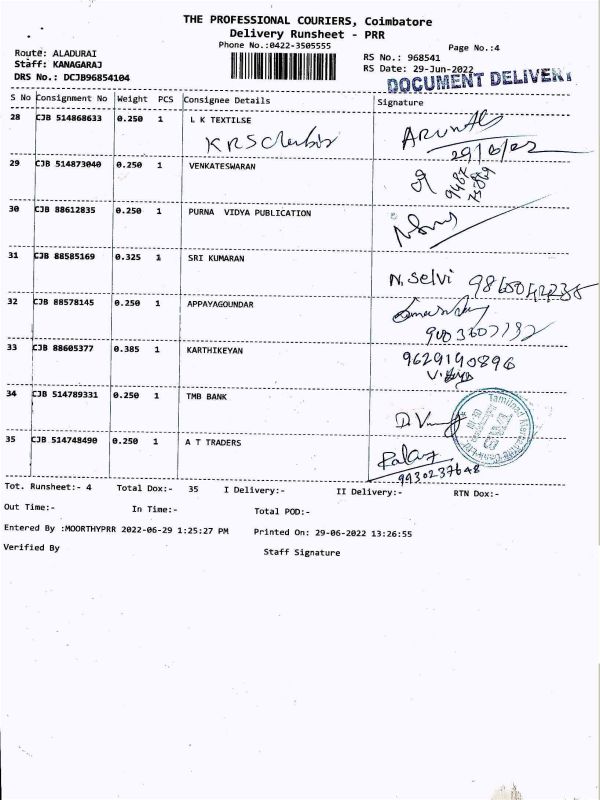 THE PROFESSIONAL COURIERS, Coimbatore
Delivery Runsheet - PRR
Phone No.:0422-3505555
Page No.:4
Route: ALADURAI
Staff: KANAGARAJ
DRS No.: DCJB96854104
RS No.: 968541
RS Date: 29-Jun-2022
DOCUMENT DELIVERY
S No Consignment No Weight PCS Consignee Details Signature
28 CJB 514868633 0.250 1 L K TEXTILSE
KRS
29/6/22
29 CJB 514873040 0.250 1 VENKATESWARAN
30 CJB 88612835 0.250 1 PURNA VIDYA PUBLICATION
31 CJB 88585169 0.325 1 SRI KUMARAN
N. Selvi
32 CJB 88578145 0.250 1 APPAYAGOUNDAR
33 CJB 88605377 0.385 1 KARTHIKEYAN
9629190896
34 CJB 514789331 0.250 1 TMB BANK
35 CJB 514748490 0.250 1 A T TRADERS
9930237648
Tot. Runsheet:- 4 Total Dox:- 35 I Delivery:- II Delivery:- RTN Dox:-
Out Time:- In Time:- Total POD:-
Entered By :MOORTHYPRR 2022-06-29 1:25:27 PM Printed On: 29-06-2022 13:26:55
Verified By Staff Signature